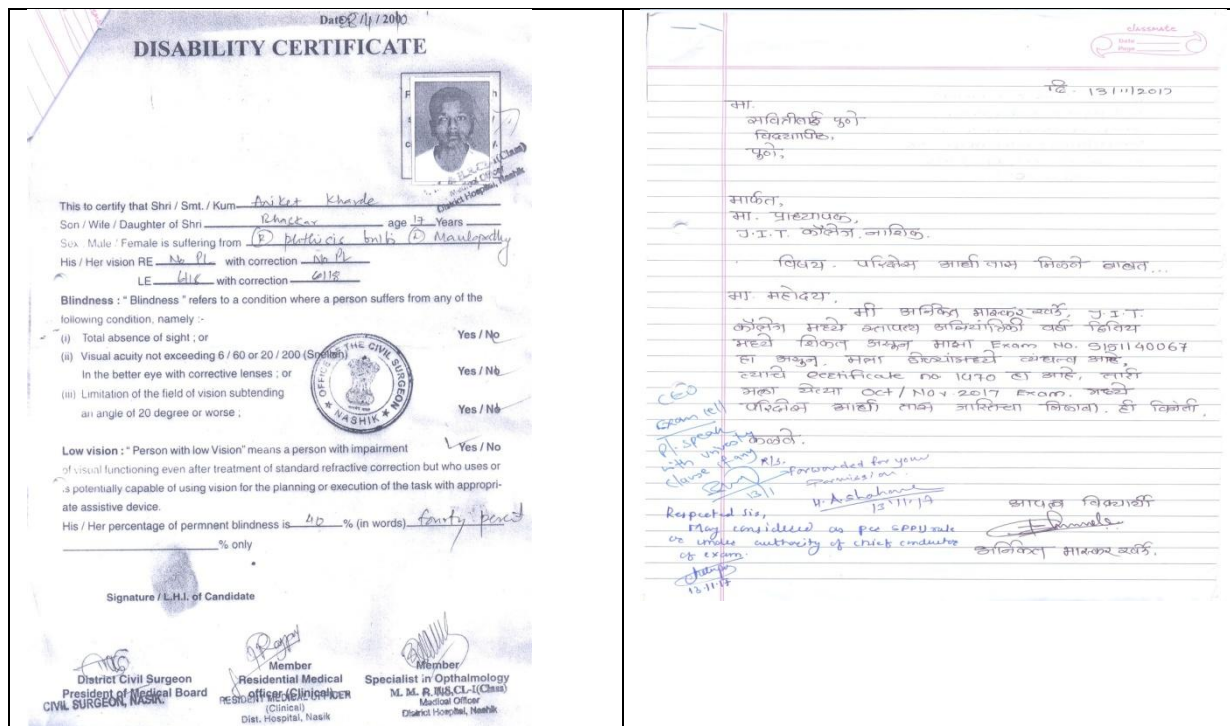 Date 28/4/2010
DISABILITY CERTIFICATE
This to certify that Shri / Smt. / Kum Aniket Kharde
Son / Wife / Daughter of Shri Bhaskar age 17 Years
Sex : Male / Female is suffering from (R) pthisis bulbi (L)
His / Her vision RE No PL with correction No PL
LE 6/18 with correction 6/18
Blindness : " Blindness " refers to a condition where a person suffers from any of the
following condition, namely :-
(i) Total absence of sight ; or Yes / No
(ii) Visual acuity not exceeding 6 / 60 or 20 / 200
In the better eye with corrective lenses ; or Yes / No
(iii) Limitation of the field of vision subtending
an angle of 20 degree or worse ; Yes / No
OFFICE OF THE CIVIL SURGEON
NASHIK
Low vision : " Person with low Vision" means a person with impairment Yes / No
of visual functioning even after treatment of standard refractive correction but who uses or
is potentially capable of using vision for the planning or execution of the task with appropri-
ate assistive device.
His / Her percentage of permnent blindness is 40 % (in words) fourty percent
% only
Signature / L.H.I. of Candidate
District Civil Surgeon
President of Medical Board
CIVIL SURGEON, NASIK.
Member
Residential Medical
officer (Clinical)
RESIDENT MEDICAL OFFICER
(Clinical)
Dist. Hospital, Nasik
Member
Specialist in Opthalmology
CL-I(Class)
Madical Officer
District Hospital, Nashik
classmate
Date
Page
दि. 13/11/2017
मा.
सवित्रीबाई पुणे
विद्यापीठ,
पुणे,
मार्फत,
मा. प्राध्यापक,
J.I.T. कॉलेज, नाशिक.
विषय. परिक्षेस जादा तास मिळणे बाबत...
मा. महोदय,
मी अनिकेत भास्कर खर्डे, J.I.T.
कॉलेज मध्ये स्थापत्य अभियांत्रिकी वर्ष द्वितिय
मध्ये शिकत असून माझा Exam No. S151140067
हा असून, मला डोळ्यांमध्ये आहे,
त्याचे certificate no 1470 हा आहे, तरी
मला येत्या Oct/Nov. 2017 Exam. मध्ये
परिक्षेस तास मिळावा. ही विनंती.
कळावे.
CEO
Exam cell
pl. speak
with university
clause if any
13/1
R/s.
forwarded for your
permission.
13/11/17
Respected sir,
May considered as per SPPU rule
or under authority of chief conductor
of exam.
13.11.17
आपला विद्यार्थी
अनिकेत भास्कर खर्डे.